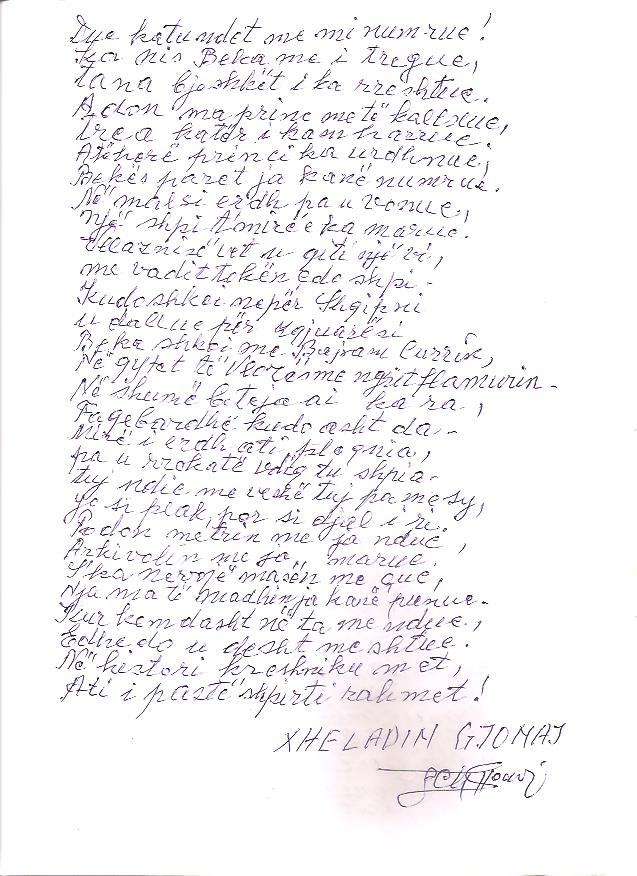 Dye katundet me mi numrue!
Ka nis Beka me i tregue,
Tana bjeshkët i ka rreshtue.
A don ma princ me të kallxue,
Tre a katër i kam harrue.
Atëherë princi ka urdhnue,
Bekës paret ja kanë numrue.
Në malsi erdh pa u vonue,
Një shpi t'mirë e ka marue.
Vllaznisë vet u gjiti një vi,
me vadit tokën edo shpi.
Kudo shkoi nepër Shqipni
u dallue për zgjuarësi
Beka shkoi me Bajram Currin,
Në qytet të Vlorës me ngrit flamurin.
Në shumë beteja ai ka ra,
Faqebardhë kudo asht da.
Mirë i erdh ati, plegnia,
pa u rrokatë vdiq tu shpia.
tuj ndie me veshë tuj pa me sy,
jo si plak, por si djal i ri.
Podon metrin me ja ndue,
Arkivolin me ja marue.
S'ka nevojë masën me que,
Nja ma të madhin ja kanë punue.
Kur kem dasht në ta me ndue,
Edhe do u desht me shtue.
Në histori kreshniku met,
Ati i pastë shpirti rahmet!
XHELADIN GJONAJ